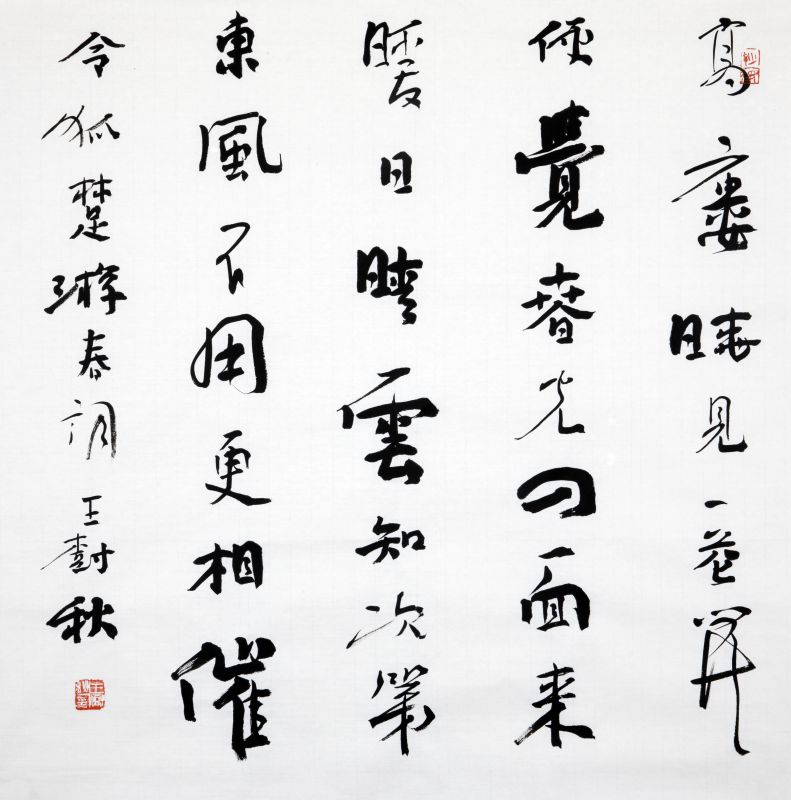 高樓曉見一花開
便覺春光四面来
暖日晴雲知次第
東風不用更相催
令狐楚游春詞 王樹秋